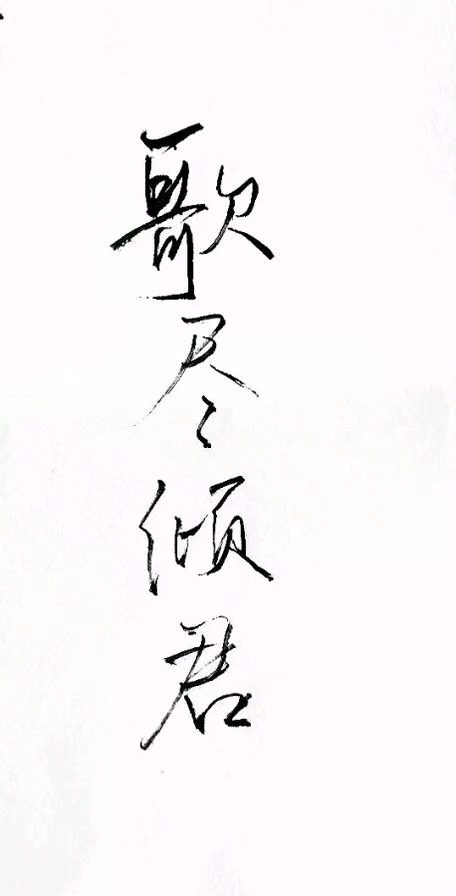 歌尽倾君